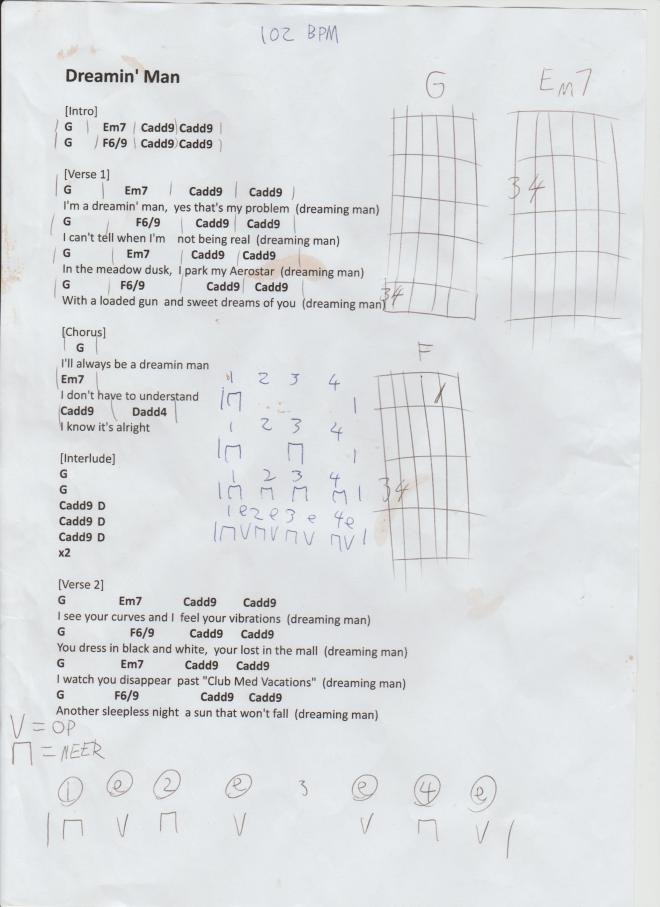 102 BPM
Dreamin' Man
G
Em7
[Intro]
| G | Em7 | Cadd9 | Cadd9 |
| G | F6/9 | Cadd9 | Cadd9 |
34
[Verse 1]
| G | Em7 | Cadd9 | Cadd9 |
I'm a dreamin' man, yes that's my problem (dreaming man)
| G | F6/9 | Cadd9 | Cadd9 |
I can't tell when I'm not being real (dreaming man)
| G | Em7 | Cadd9 | Cadd9 |
In the meadow dusk, I park my Aerostar (dreaming man)
| G | F6/9 | Cadd9 | Cadd9 |
With a loaded gun and sweet dreams of you (dreaming man)
34
[Chorus]
| G |
I'll always be a dreamin man
| Em7 |
I don't have to understand
| Cadd9 | Dadd4 |
I know it's alright
F
34
1 2 3 4
|⊓ |
1 2 3 4
|⊓ ⊓ |
1 2 3 4
|⊓ ⊓ ⊓ ⊓ |
1e2e3e 4e
|⊓V⊓V⊓V ⊓V|
[Interlude]
G
G
Cadd9 D
Cadd9 D
Cadd9 D
x2
[Verse 2]
G Em7 Cadd9 Cadd9
I see your curves and I feel your vibrations (dreaming man)
G F6/9 Cadd9 Cadd9
You dress in black and white, your lost in the mall (dreaming man)
G Em7 Cadd9 Cadd9
I watch you disappear past "Club Med Vacations" (dreaming man)
G F6/9 Cadd9 Cadd9
Another sleepless night a sun that won't fall (dreaming man)
V = OP
⊓ = NEER
1 e 2 e 3 e 4 e
|⊓ V ⊓ V V ⊓ V |